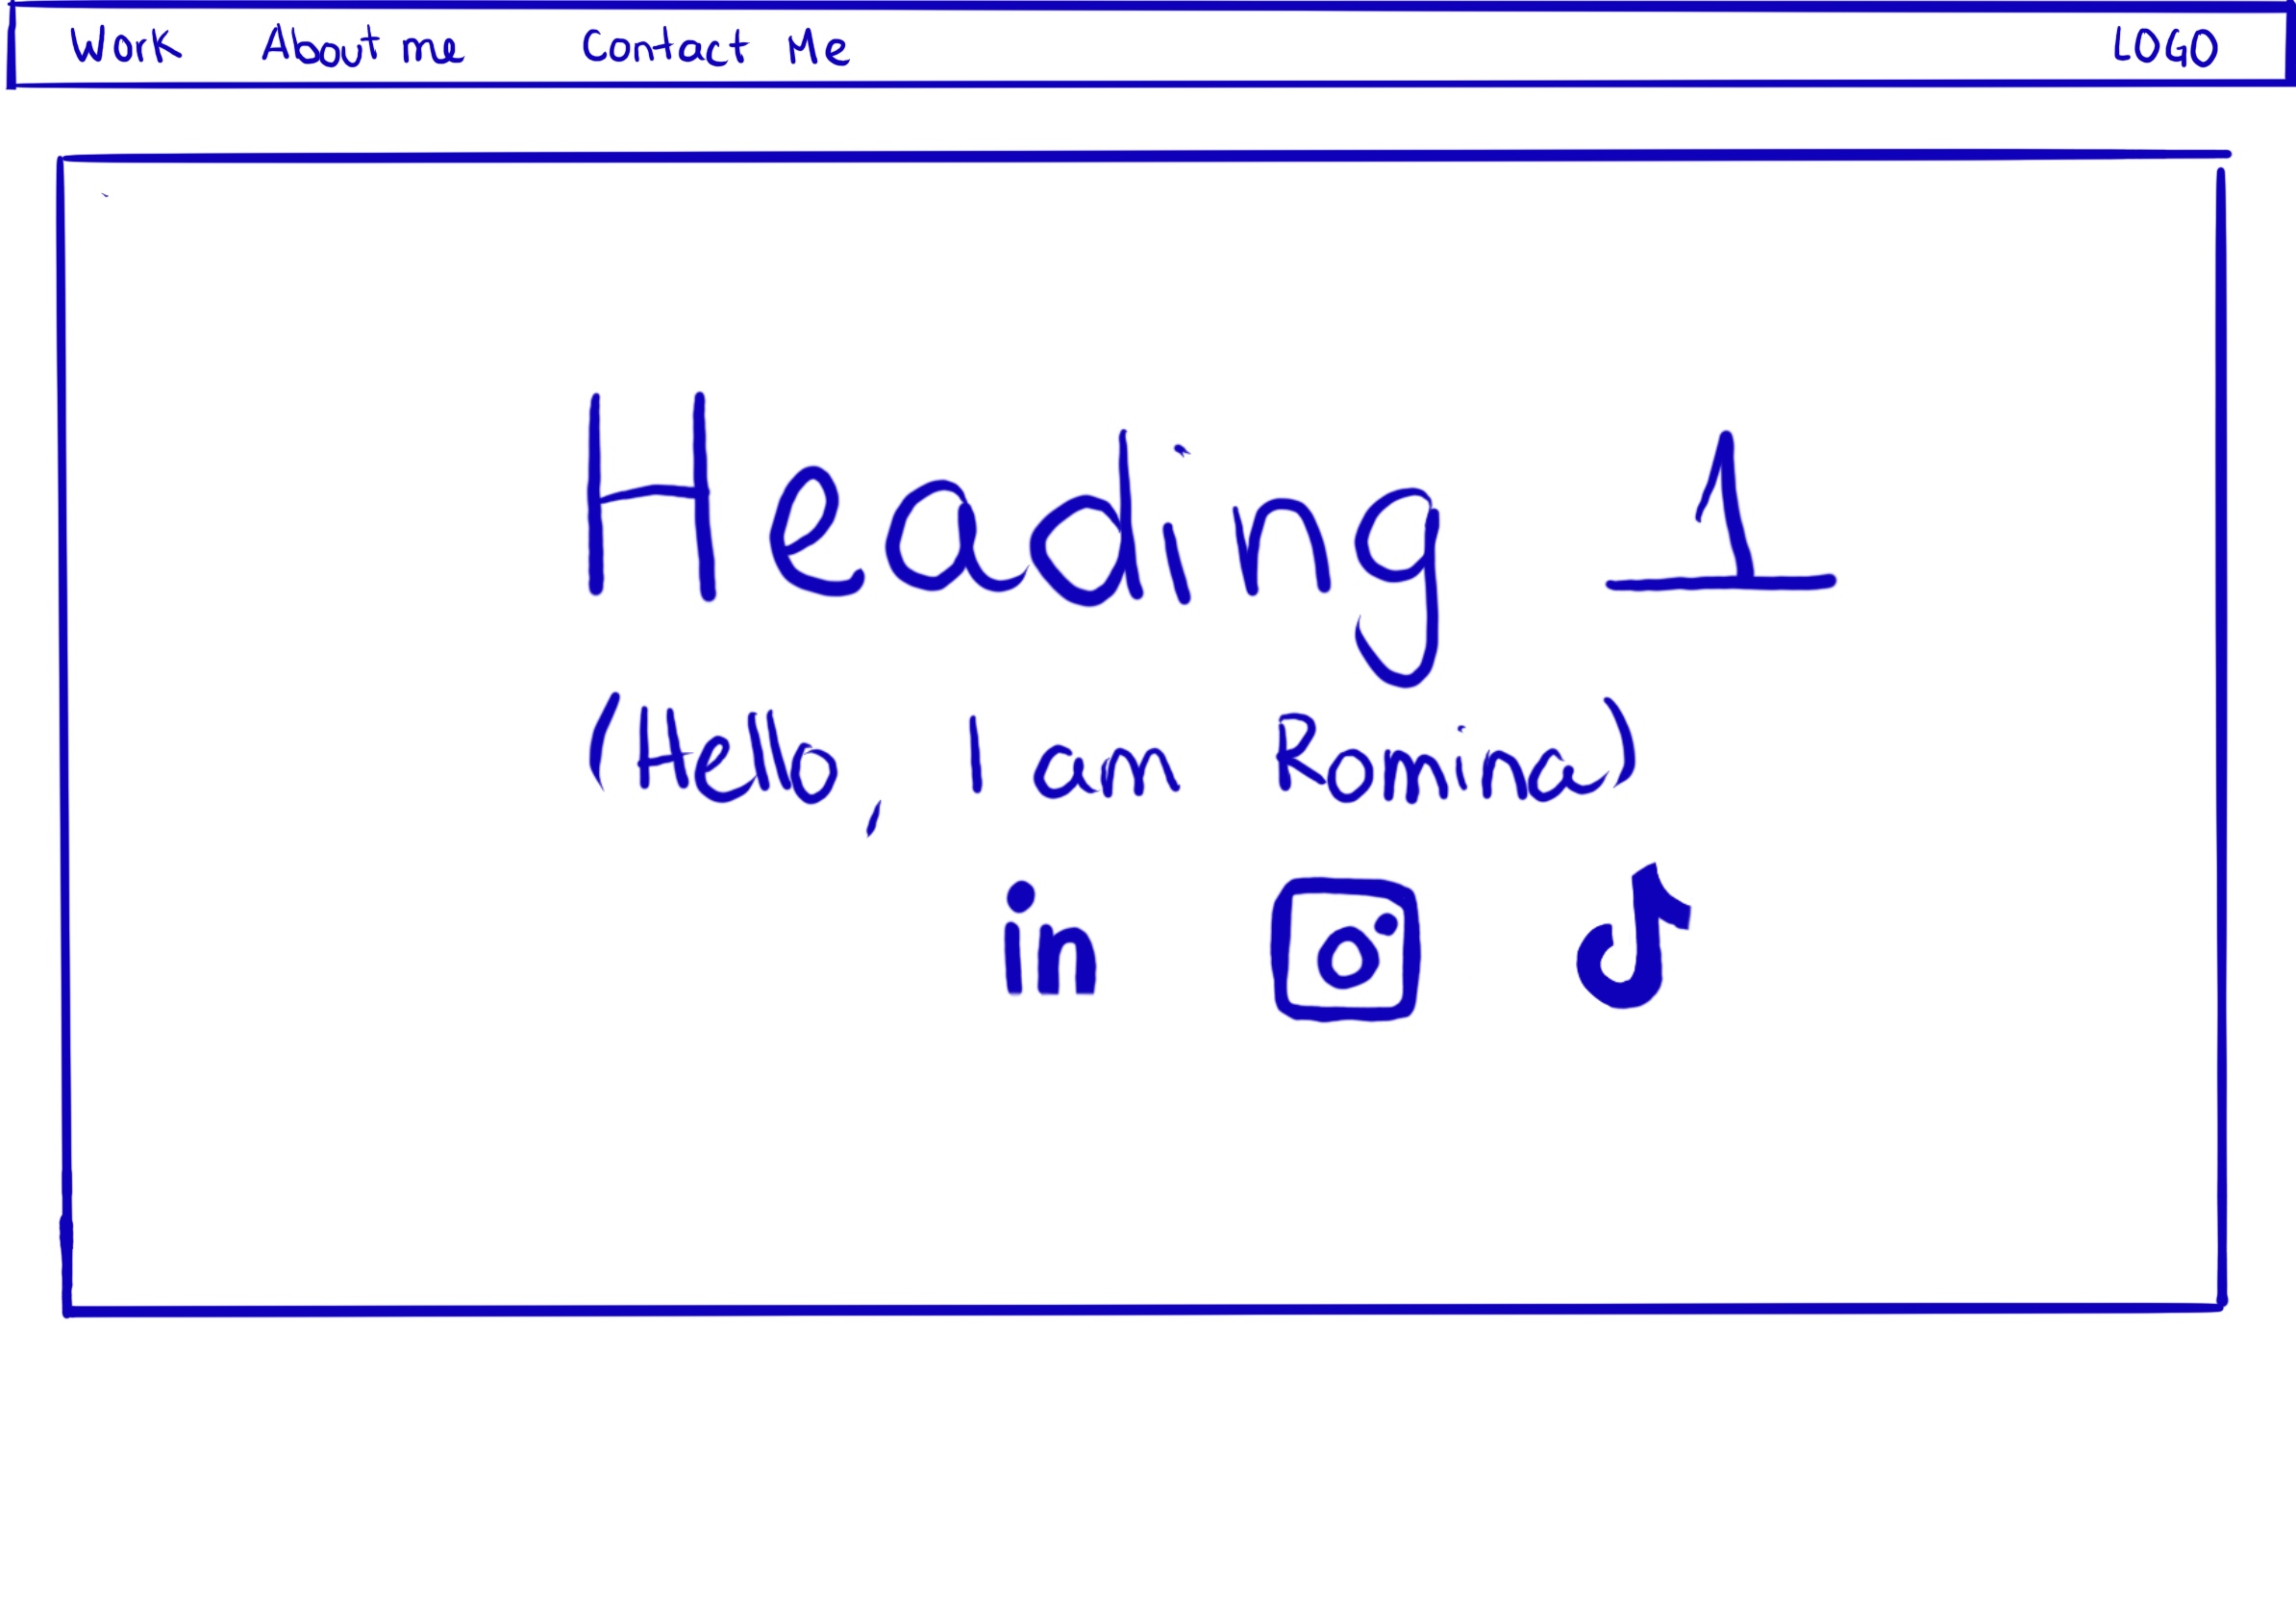 Work About me Contact Me LOGO
Heading 1
(Hello, I am Romina)
in